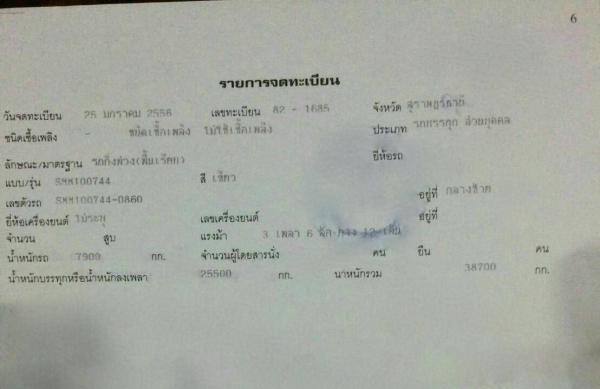 6
รายการจดทะเบียน
วันจดทะเบียน 25 มกราคม 2556 เลขทะเบียน 82 - 1685 จังหวัด สุราษฎร์ธานี
ชนิดเชื้อเพลิง - ชนิดเชื้อเพลิง ไม่ใช้เชื้อเพลิง ประเภท รถบรรทุก ส่วนบุคคล
ลักษณะ/มาตรฐาน รถกึ่งพ่วง(พื้นเรียบ) ยี่ห้อรถ
แบบ/รุ่น SMM100744 สี เขียว
เลขตัวรถ SMM100744-0860 อยู่ที่ กลางซ้าย
ยี่ห้อเครื่องยนต์ ไม่ระบุ เลขเครื่องยนต์ อยู่ที่
จำนวน สูบ แรงม้า 3 เพลา 6 ล้อ ยาง 12 เส้น
น้ำหนักรถ 7900 กก. จำนวนผู้โดยสารนั่ง คน ยืน คน
น้ำหนักบรรทุกหรือน้ำหนักลงเพลา 25500 กก. น้ำหนักรวม 38700 กก.